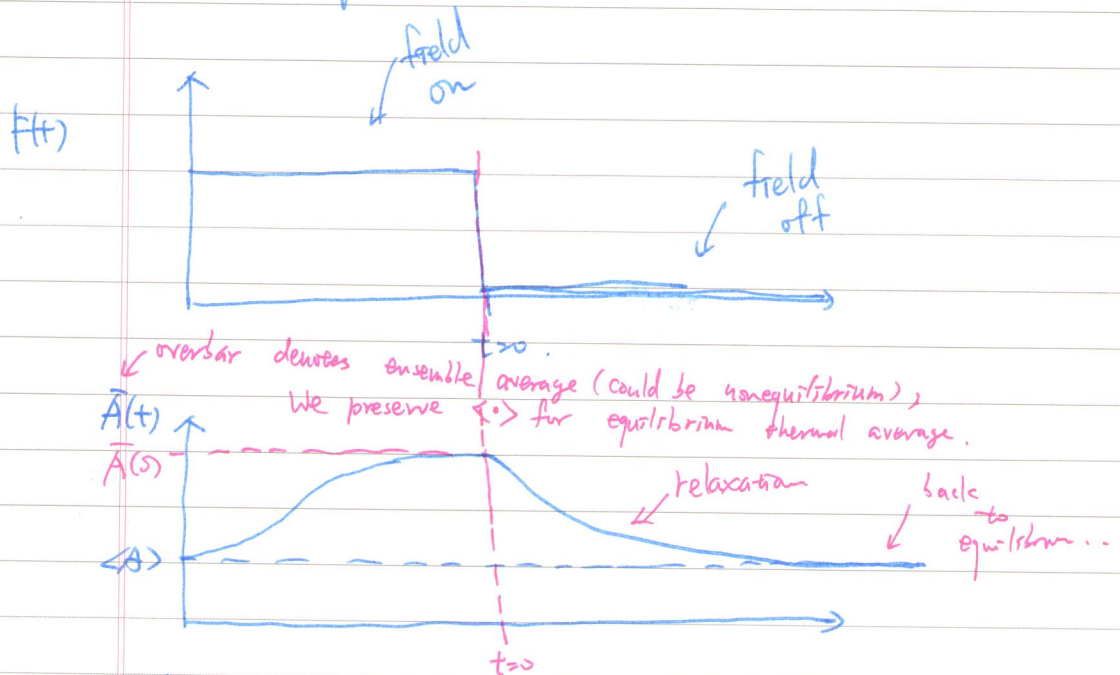 field
on
F(t)
field
off
t=0.
overbar denotes ensemble average (could be nonequilibrium),
We preserve <•> for equilibrium thermal average.
Ā(t)
Ā(0)
relaxation
back
to
<A>
t=0